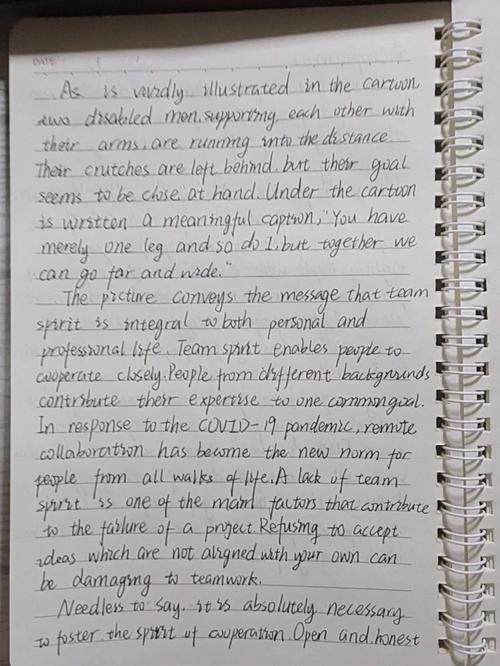 DATE
As is vividly illustrated in the cartoon,
two disabled men, supporting each other with
their arms, are running into the distance.
Their crutches are left behind, but their goal
seems to be close at hand. Under the cartoon
is written a meaningful caption, "You have
merely one leg and so do I, but together we
can go far and wide."
The picture conveys the message that team
spirit is integral to both personal and
professional life. Team spirit enables people to
cooperate closely. People from different backgrounds
contribute their expertise to one common goal.
In response to the COVID-19 pandemic, remote
collaboration has become the new norm for
people from all walks of life. A lack of team
spirit is one of the main factors that contribute
to the failure of a project. Refusing to accept
ideas which are not aligned with your own can
be damaging to teamwork.
Needless to say, it is absolutely necessary
to foster the spirit of cooperation. Open and honest